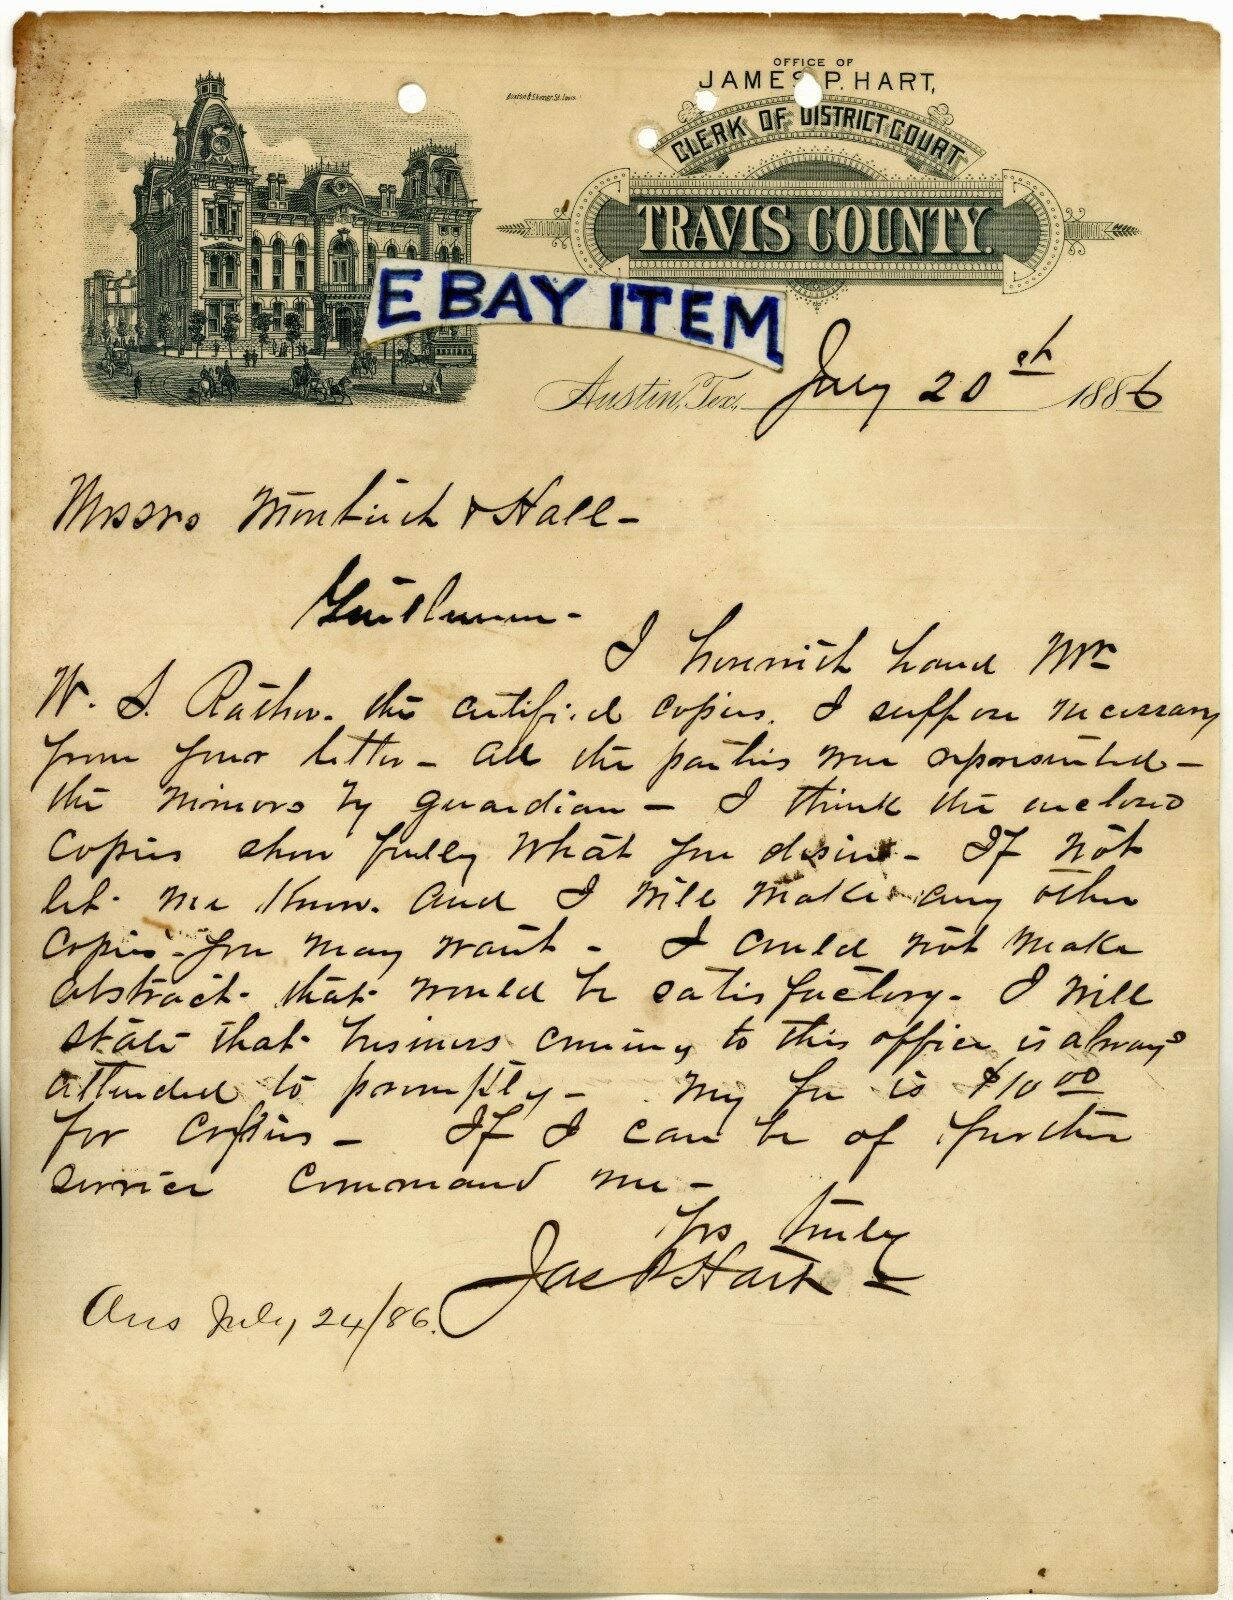 OFFICE OF
JAMES P. HART,
CLERK OF DISTRICT COURT
TRAVIS COUNTY.
EBAY ITEM
Austin, Tex., July 20th 1886
Messrs & Hall -
Gentlemen -
I herewith hand Mr
W. S. Rather. the certified copies. I suppose necessary
from your letter - all the parties were represented -
the minors by guardian - I think the enclosed
copies show fully what you desire - If not
let me know. and I will make any other
copies - you may want - I could not make
abstract that would be satisfactory - I will
state that business coming to this office is always
attended to promptly - My fee is $10 00
for copies - If I can be of further
service command me -
Yrs truly
Jas P Hart
Ans July 24/86.